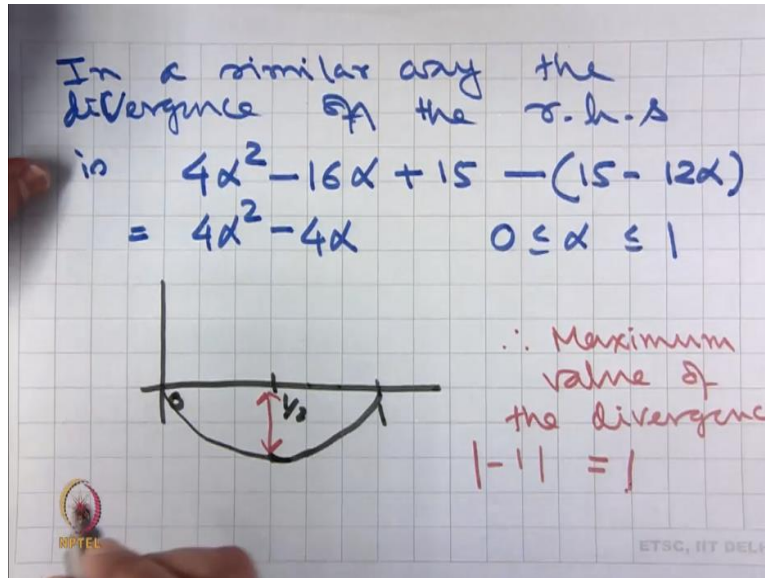 In a similar way the
divergence of the r.h.s
is 4α² – 16α + 15 – (15 – 12α)
= 4α² – 4α 0 ≤ α ≤ 1
∴ Maximum
value of
the divergenc
|-1| = 1
0
1/2
1
NPTEL
ETSC, IIT DEL